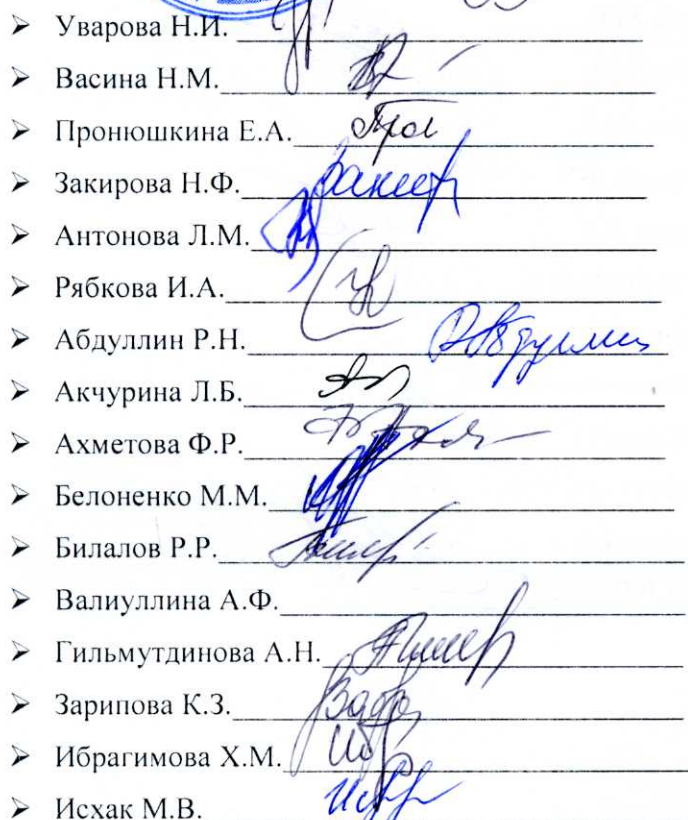 ➢ Уварова Н.И.
➢ Васина Н.М.
➢ Пронюшкина Е.А.
➢ Закирова Н.Ф.
➢ Антонова Л.М.
➢ Рябкова И.А.
➢ Абдуллин Р.Н.
➢ Акчурина Л.Б.
➢ Ахметова Ф.Р.
➢ Белоненко М.М.
➢ Билалов Р.Р.
➢ Валиуллина А.Ф.
➢ Гильмутдинова А.Н.
➢ Зарипова К.З.
➢ Ибрагимова Х.М.
➢ Исхак М.В.